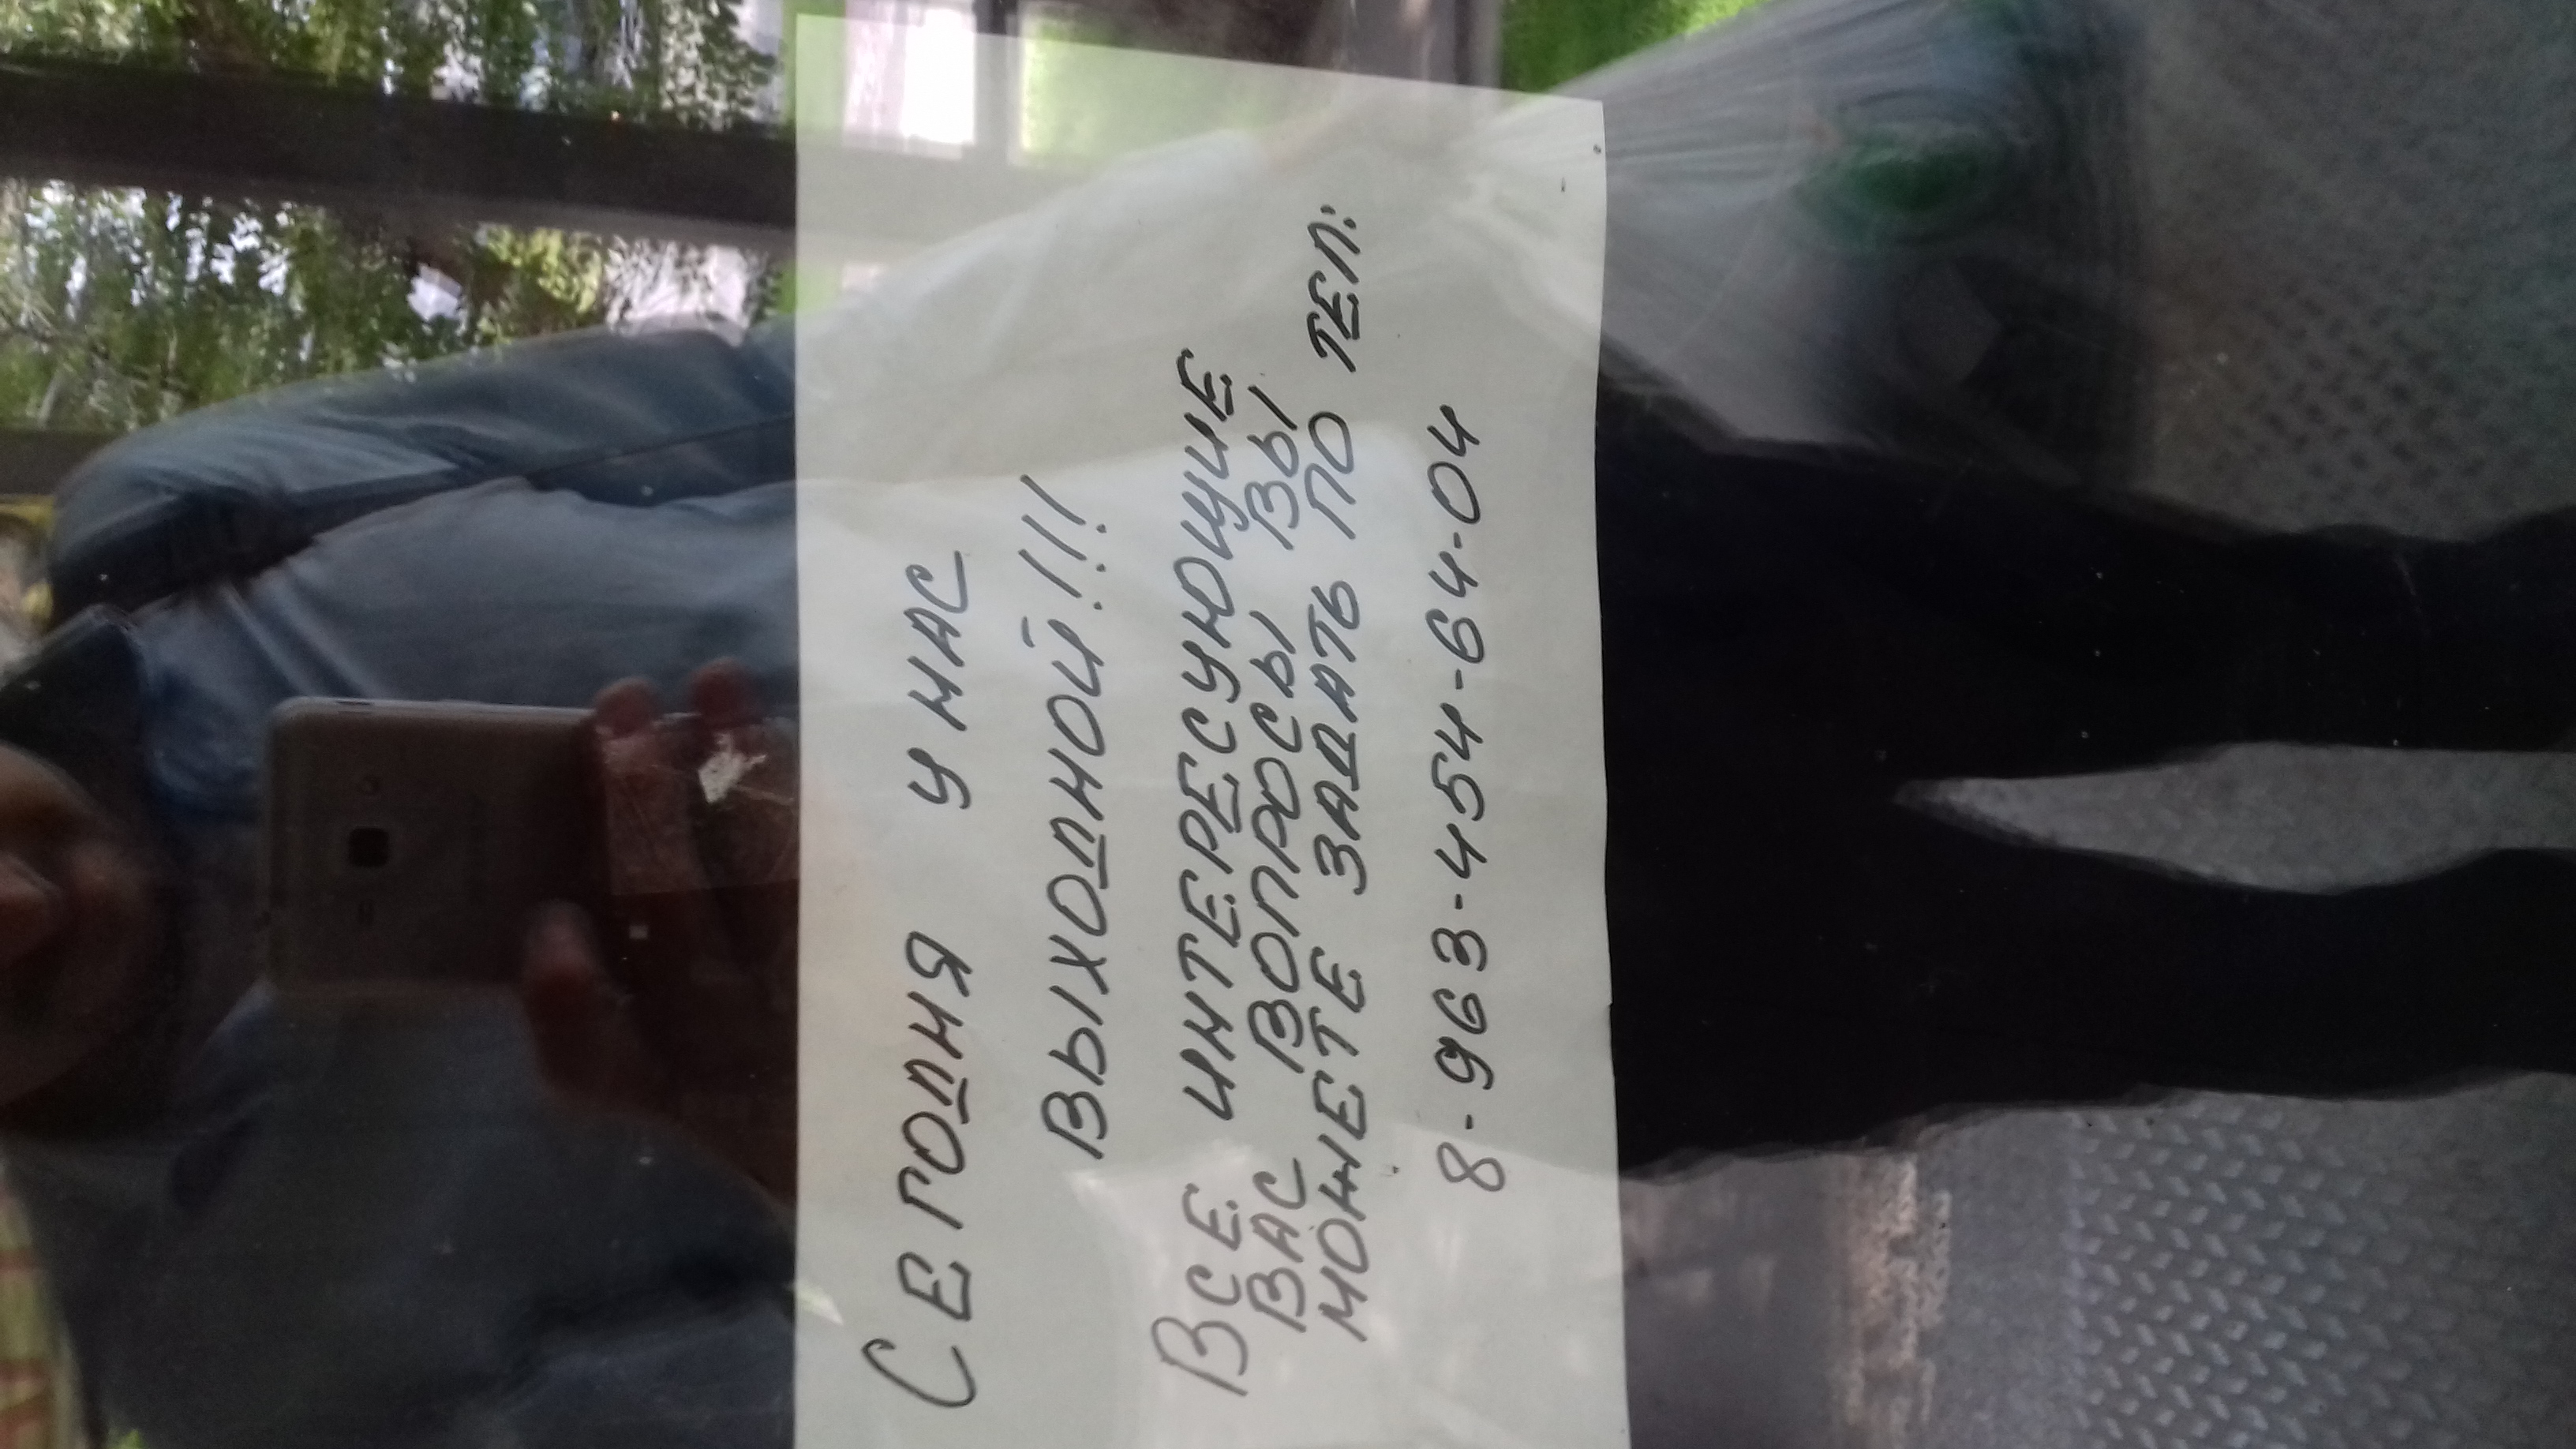 Сегодня у нас
выходной!!!
Все интересующие
вас вопросы вы
можете задать по тел:
8-963-454-64-04